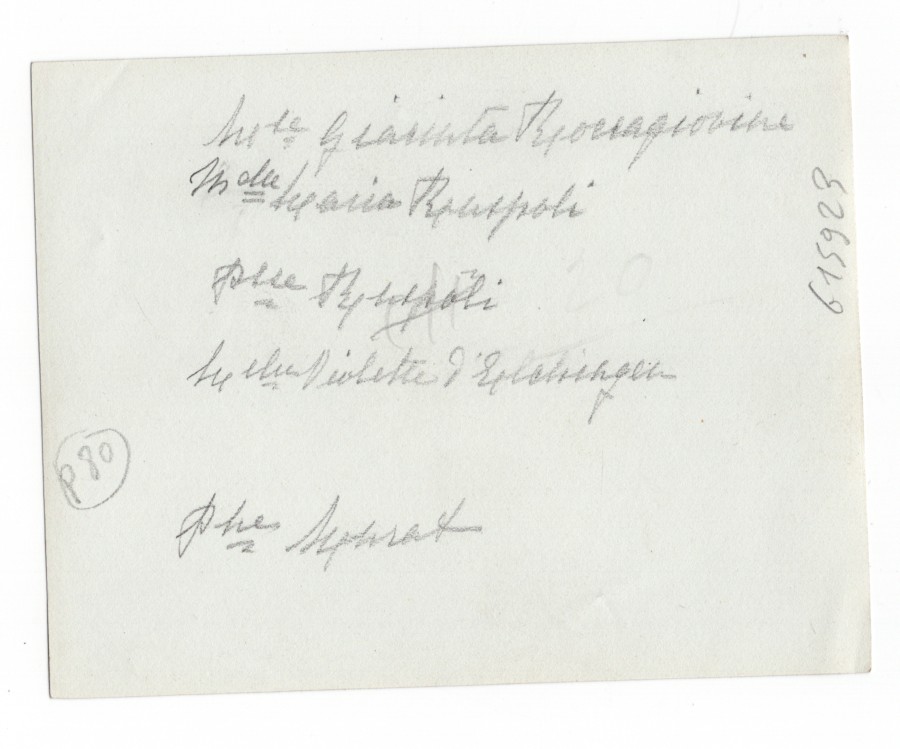 M^te Giacinta Roccagiovine
M^elle Maria Ruspoli
P^sse Ruspoli
M^elle Violette d'Elchingen
P^sse Murat
P 80
615923